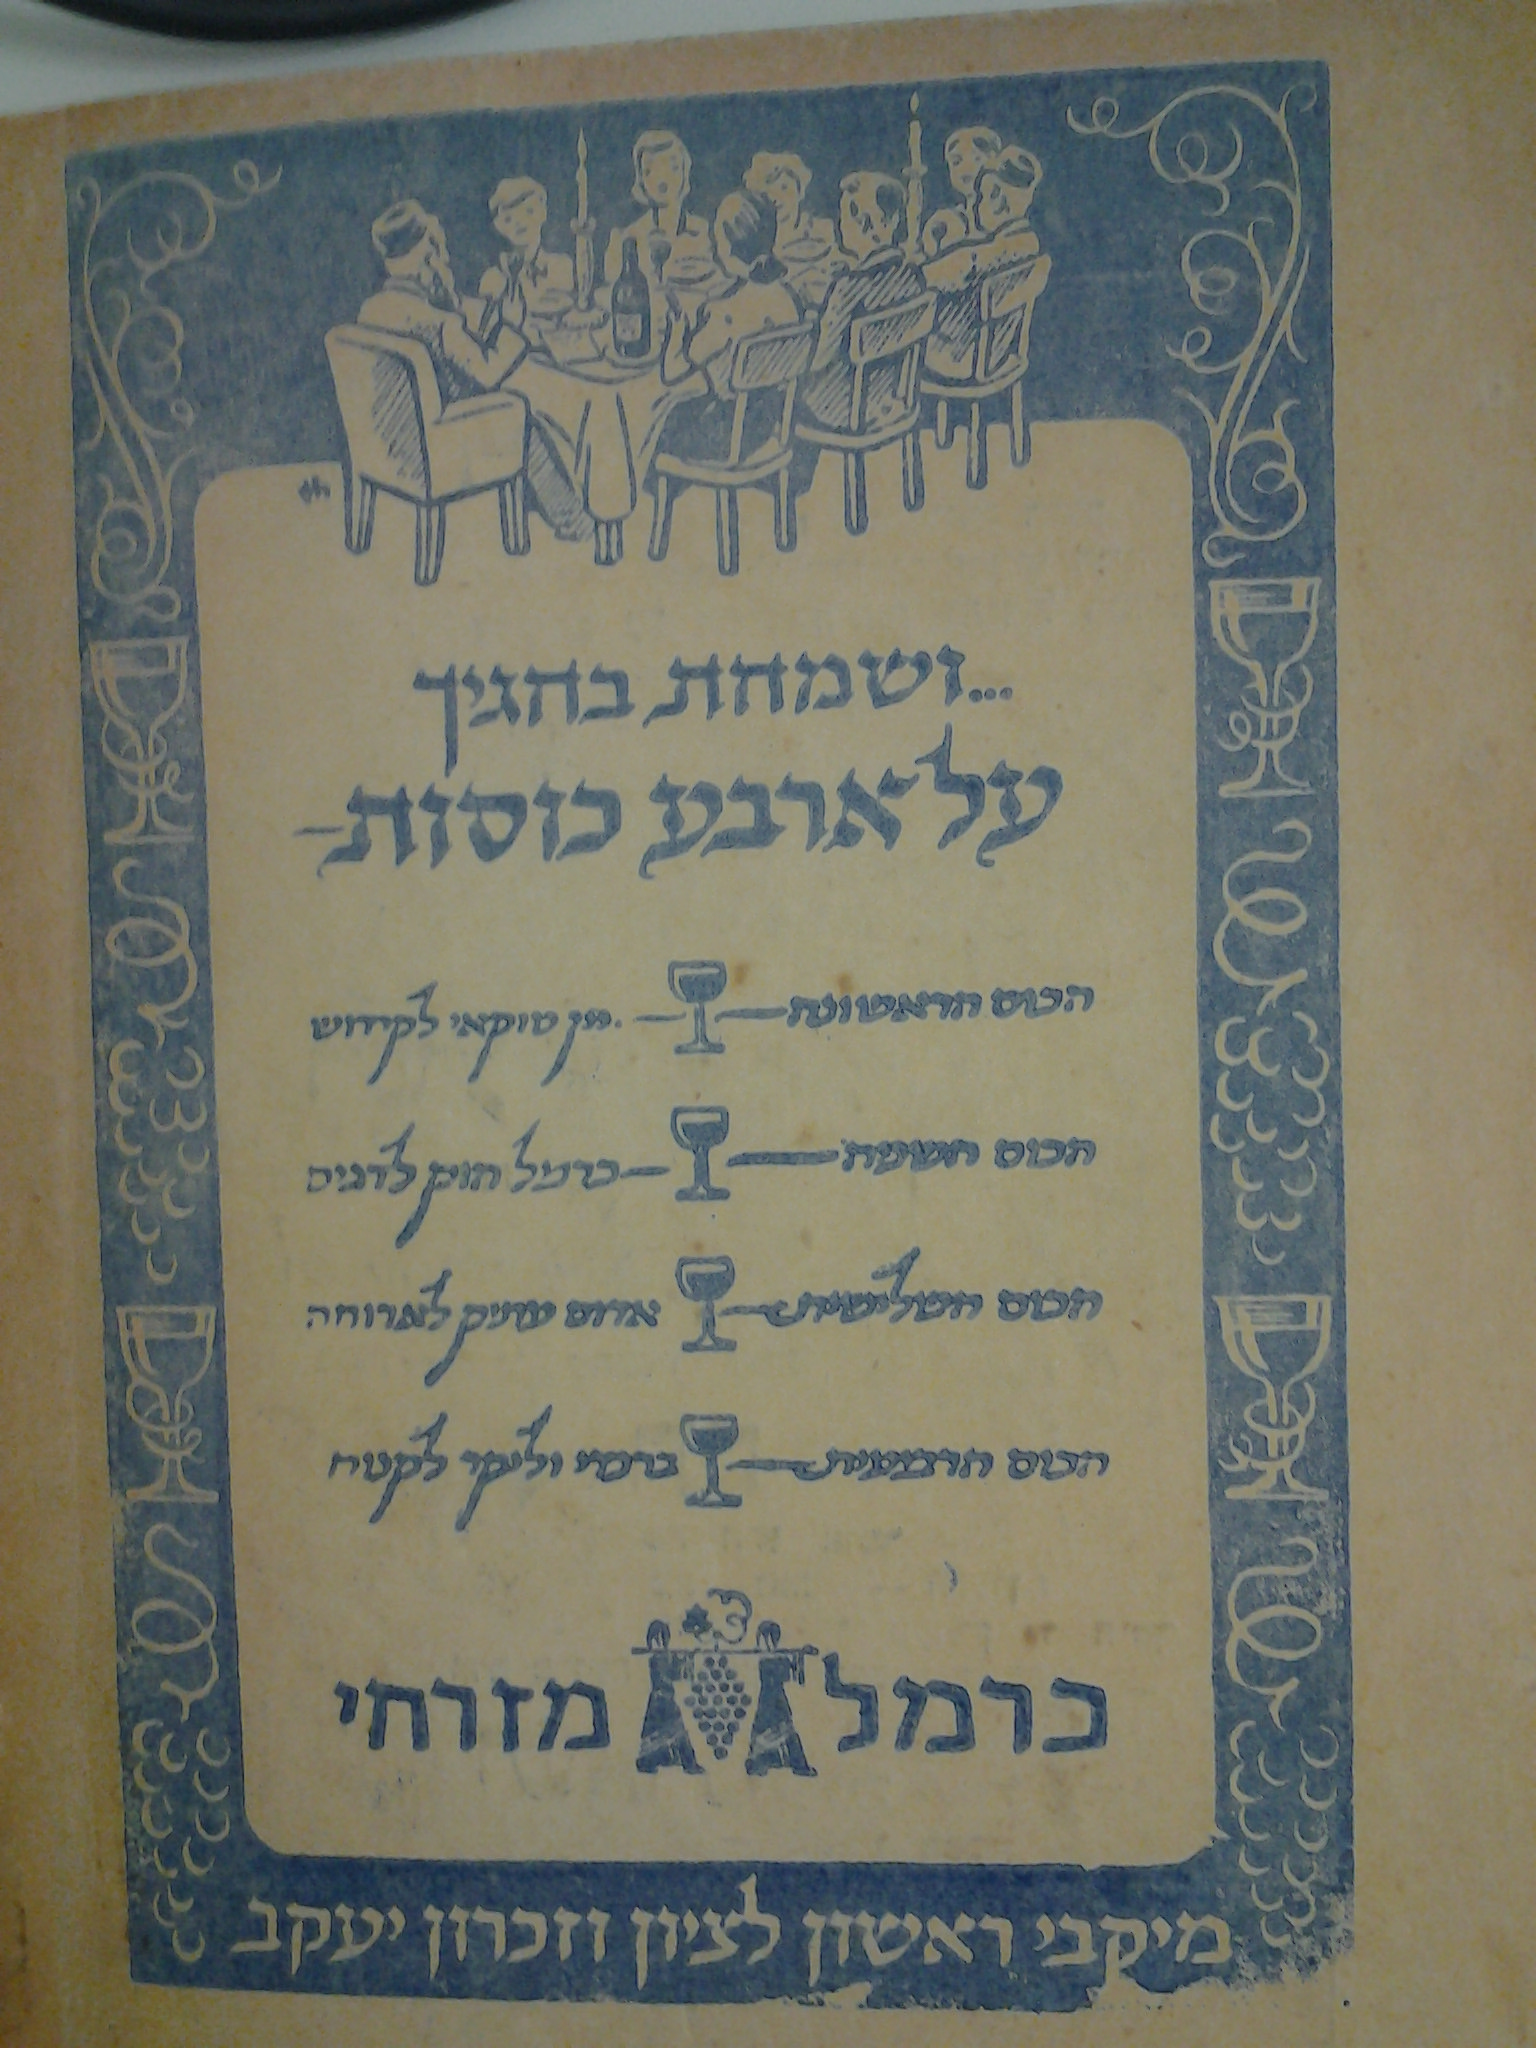 ...ושמחת בחגיך
על ארבע כוסות–
הכוס הראשונה — יין טוקאי לקידוש
הכוס השניה — כרמל הוק לדגים
הכוס השלישית — אדום עתיק לארוחה
הכוס הרביעית — ברנדי וליקר לקנוח
כרמל מזרחי
מיקבי ראשון לציון וזכרון יעקב